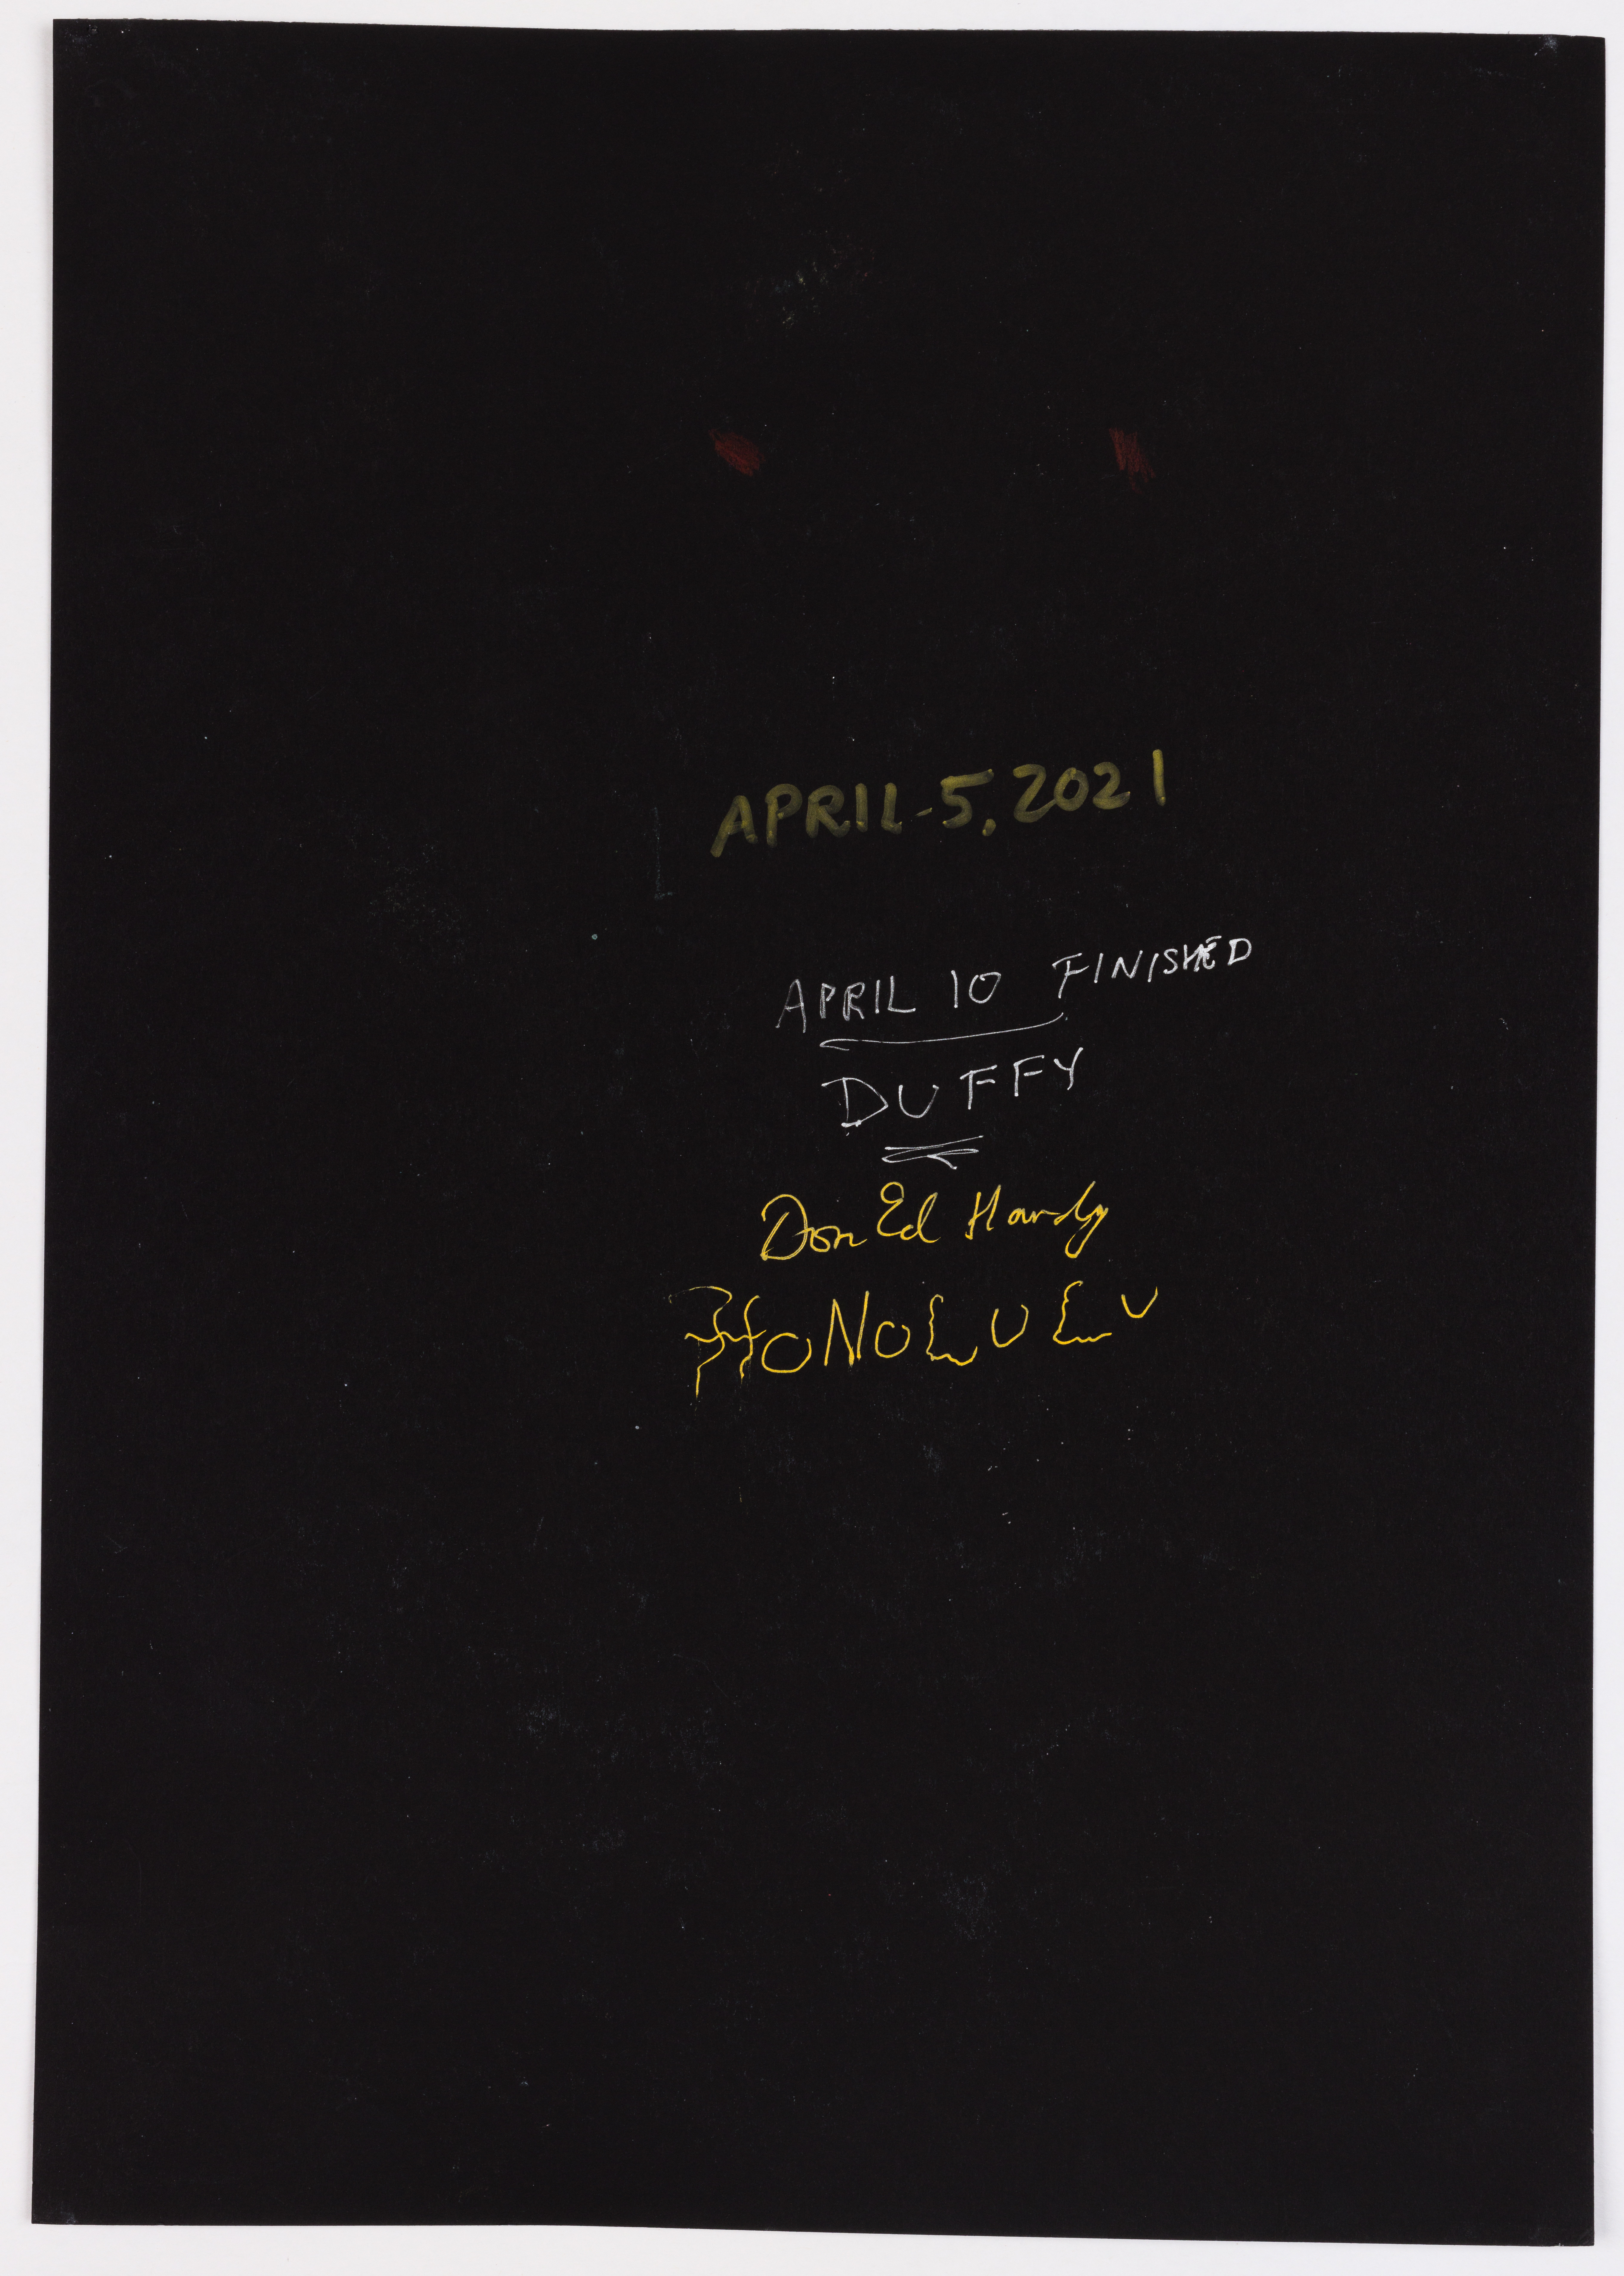 APRIL-5, 2021
APRIL 10 FINISHED
DUFFY
Don Ed Hardy
HONOLULU